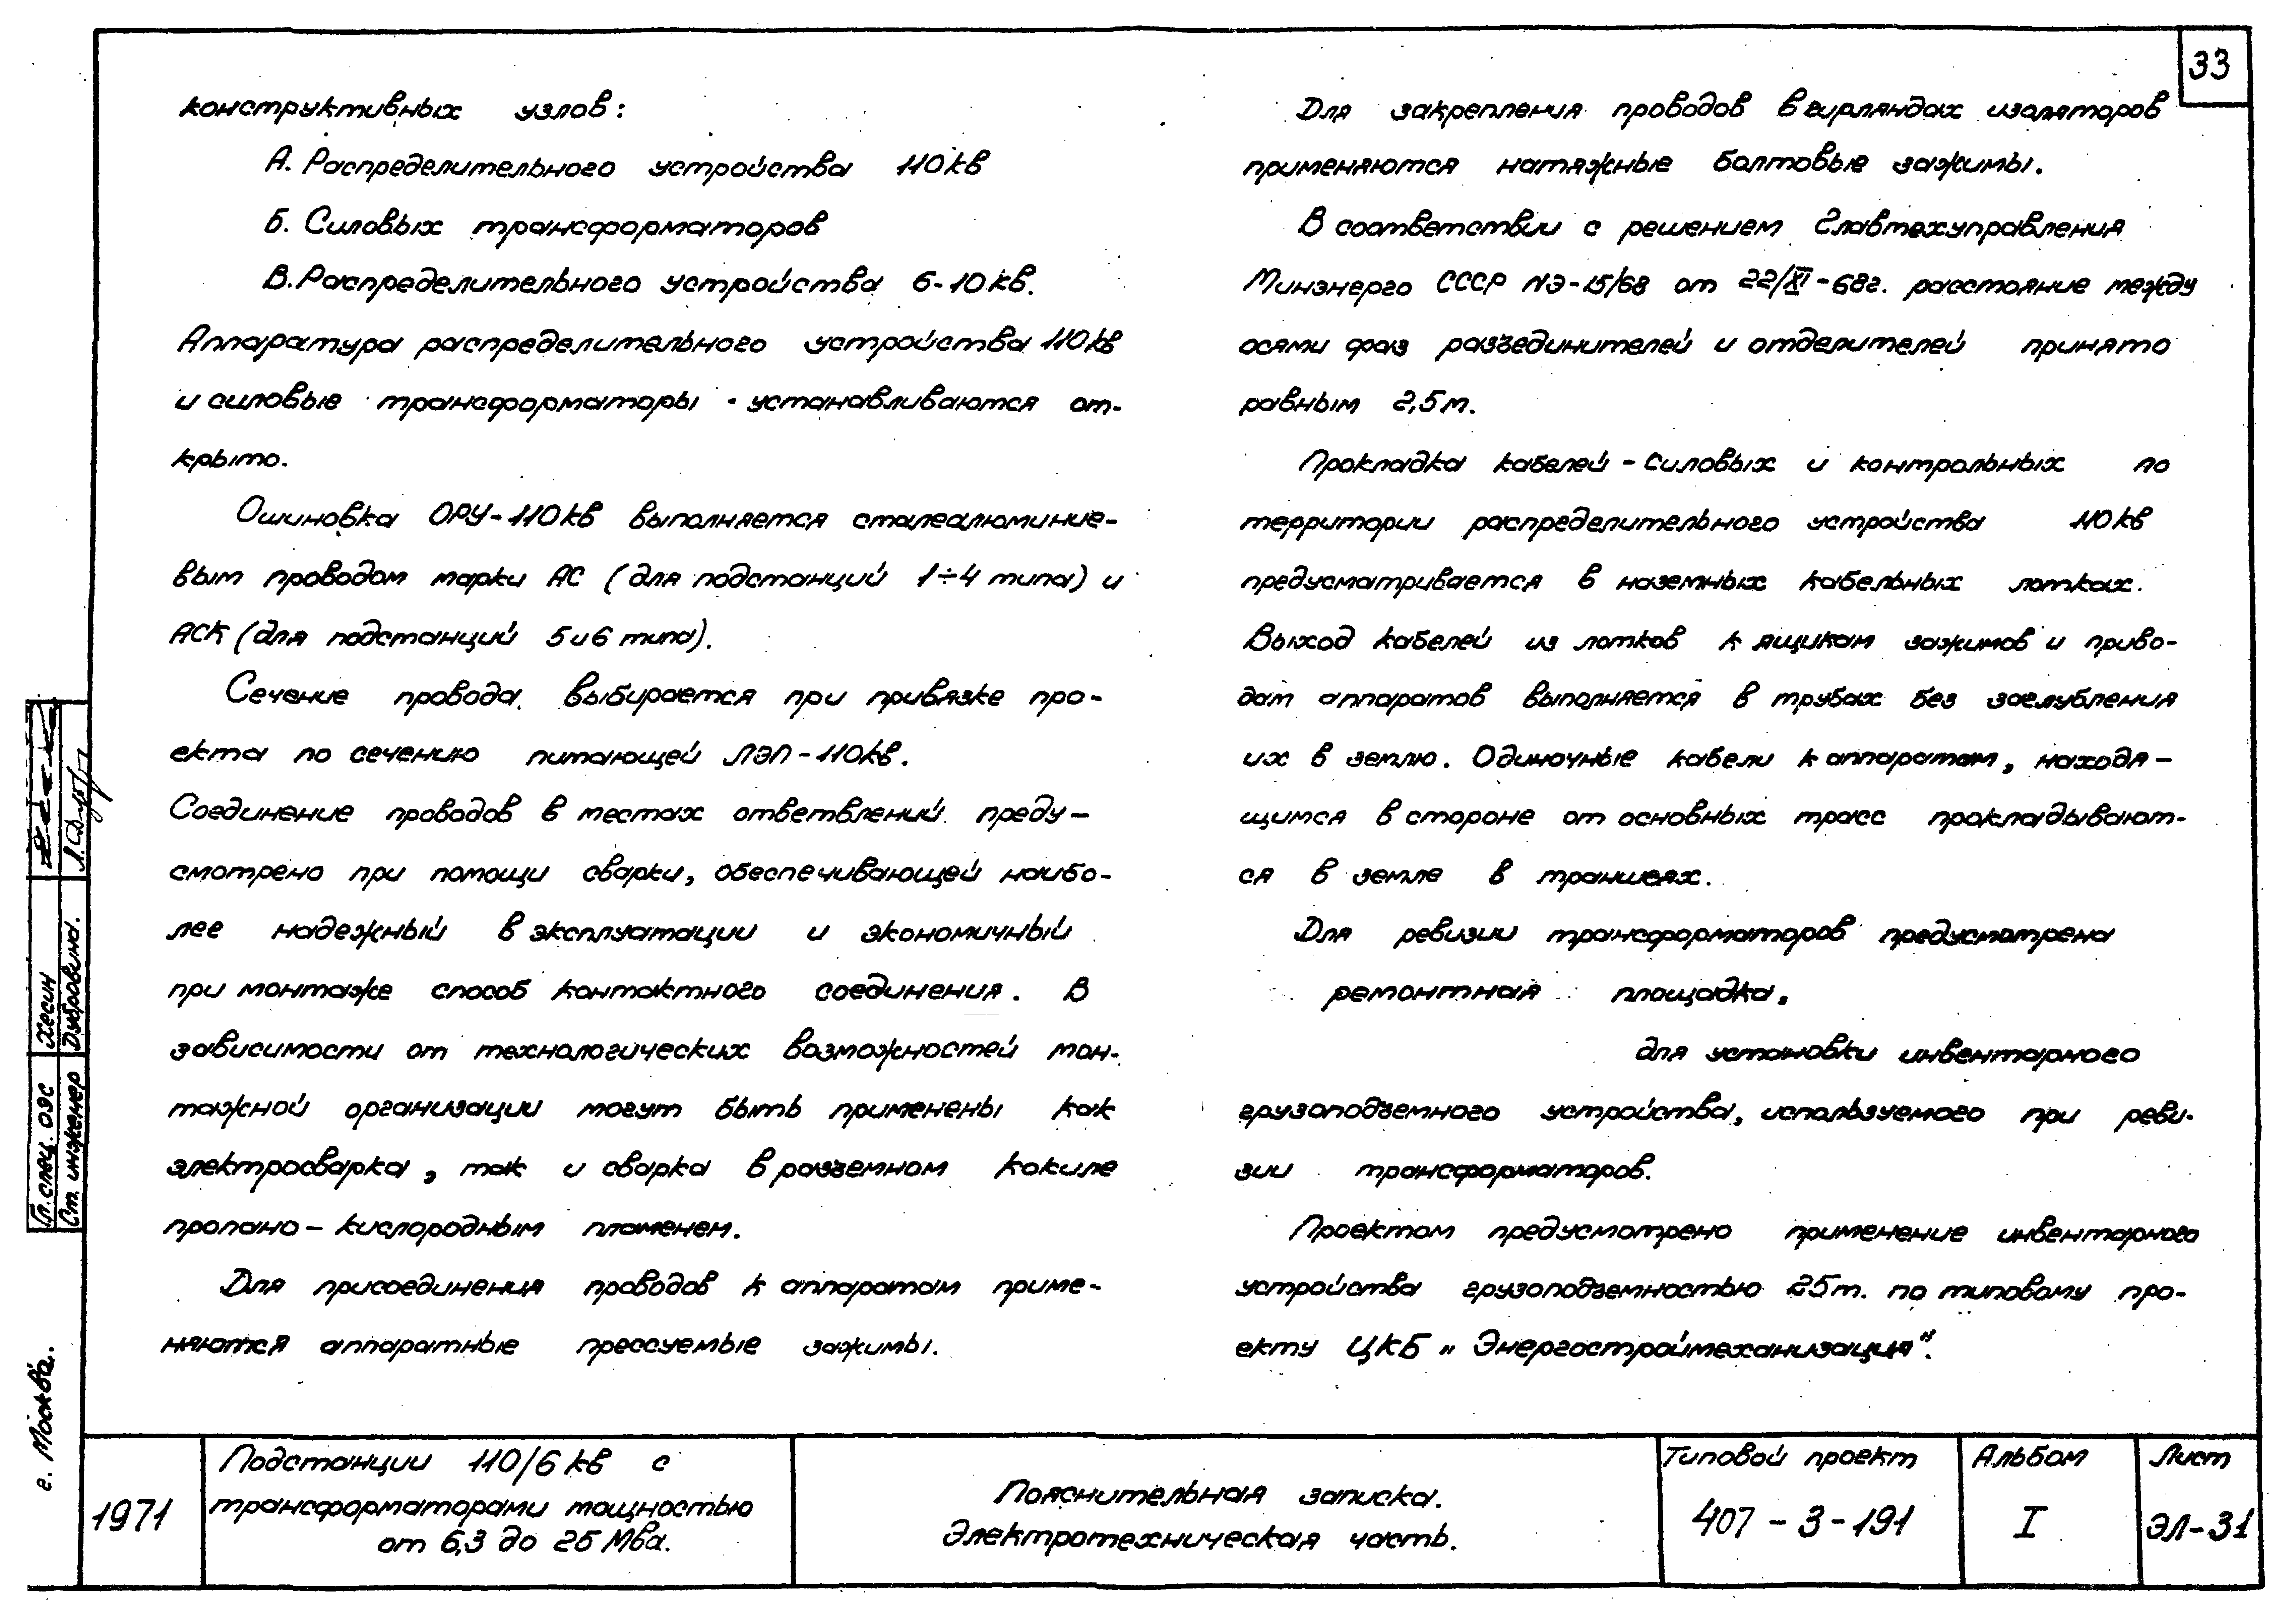 33
конструктивных узлов:
А. Распределительного устройства 110кв
Б. Силовых трансформаторов
В. Распределительного устройства 6-10кв.
Аппаратура распределительного устройства 110кв
и силовые трансформаторы - устанавливаются от-
крыто.
Ошиновка ОРУ-110кв выполняется сталеалюминие-
вым проводом марки АС (для подстанций 1÷4 типа) и
АСК (для подстанций 5 и 6 типа).
Сечение провода выбирается при привязке про-
екта по сечению питающей ЛЭП-110кв.
Соединение проводов в местах ответвлений преду-
смотрено при помощи сварки, обеспечивающей наибо-
лее надежный в эксплуатации и экономичный
при монтаже способ контактного соединения. В
зависимости от технологических возможностей мон-
тажной организации могут быть применены как
электросварка, так и сварка в разъемном кокиле
пропано-кислородным пламенем.
Для присоединения проводов к аппаратам приме-
няются аппаратные прессуемые зажимы.
Для закрепления проводов в гирляндах изоляторов
применяются натяжные болтовые зажимы.
В соответствии с решением Главтехуправления
Минэнерго СССР №Э-15/68 от 22/XI-68г. расстояние между
осями фаз разъединителей и отделителей принято
равным 2,5м.
Прокладка кабелей - силовых и контрольных по
территории распределительного устройства 110кв
предусматривается в наземных кабельных лотках.
Выход кабелей из лотков к ящикам зажимов и приво-
дам аппаратов выполняется в трубах без заглубления
их в землю. Одиночные кабели к аппаратам, находя-
щимся в стороне от основных трасс прокладывают-
ся в земле в траншеях.
Для ревизии трансформаторов предусмотрена
ремонтная площадка,
для установки инвентарного
грузоподъемного устройства, используемого при реви-
зии трансформаторов.
Проектом предусмотрено применение инвентарного
устройства грузоподъемностью 25т. по типовому про-
екту ЦКБ „Энергостроймеханизация".
Гл. спец. ОЭС Хесин
Ст. инженер Дубровина.
г. Москва.
1971
Подстанции 110/6 кв с
трансформаторами мощностью
от 6,3 до 25 Мва.
Пояснительная записка.
Электротехническая часть.
Типовой проект
407-3-191
Альбом
I
Лист
ЭЛ-31